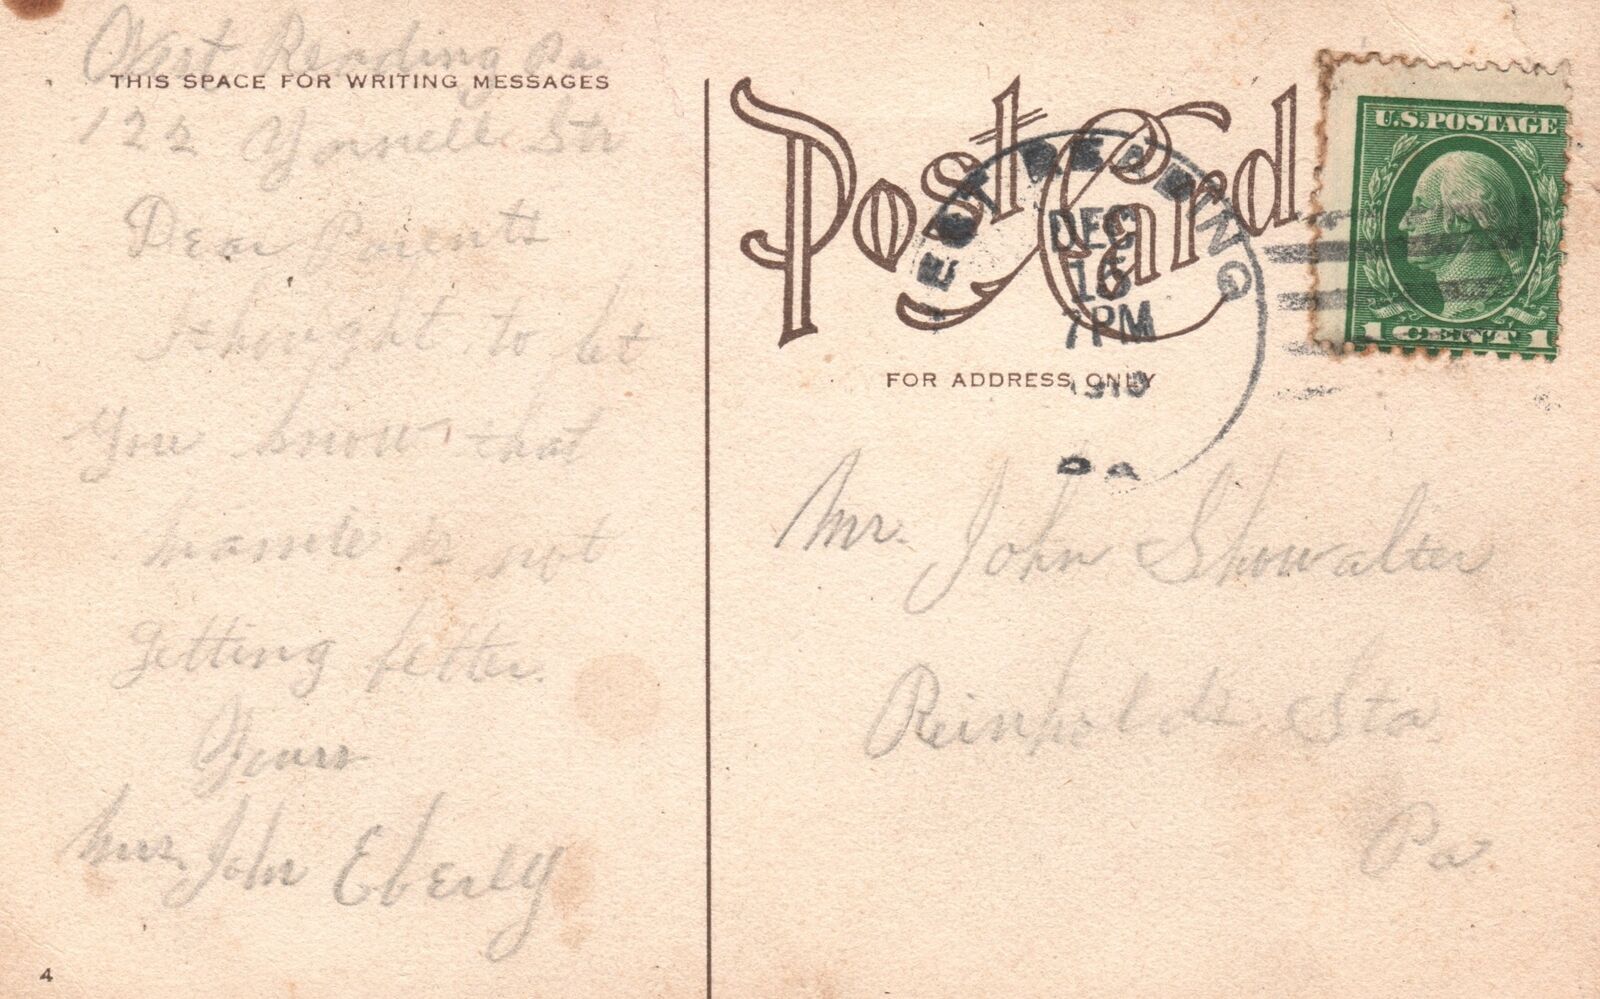 West Reading Pa
THIS SPACE FOR WRITING MESSAGES
122 Yarnell Str
Dear Parents
thought to let
You know that
is not
getting better.
Yours
Mrs. John Eberly
4
Post Card
WEST READING
DEC
16
7 PM
PA
FOR ADDRESS ONLY
U.S. POSTAGE
1 CENT 1
Mr. John Showalter
Reinholds Sta
Pa